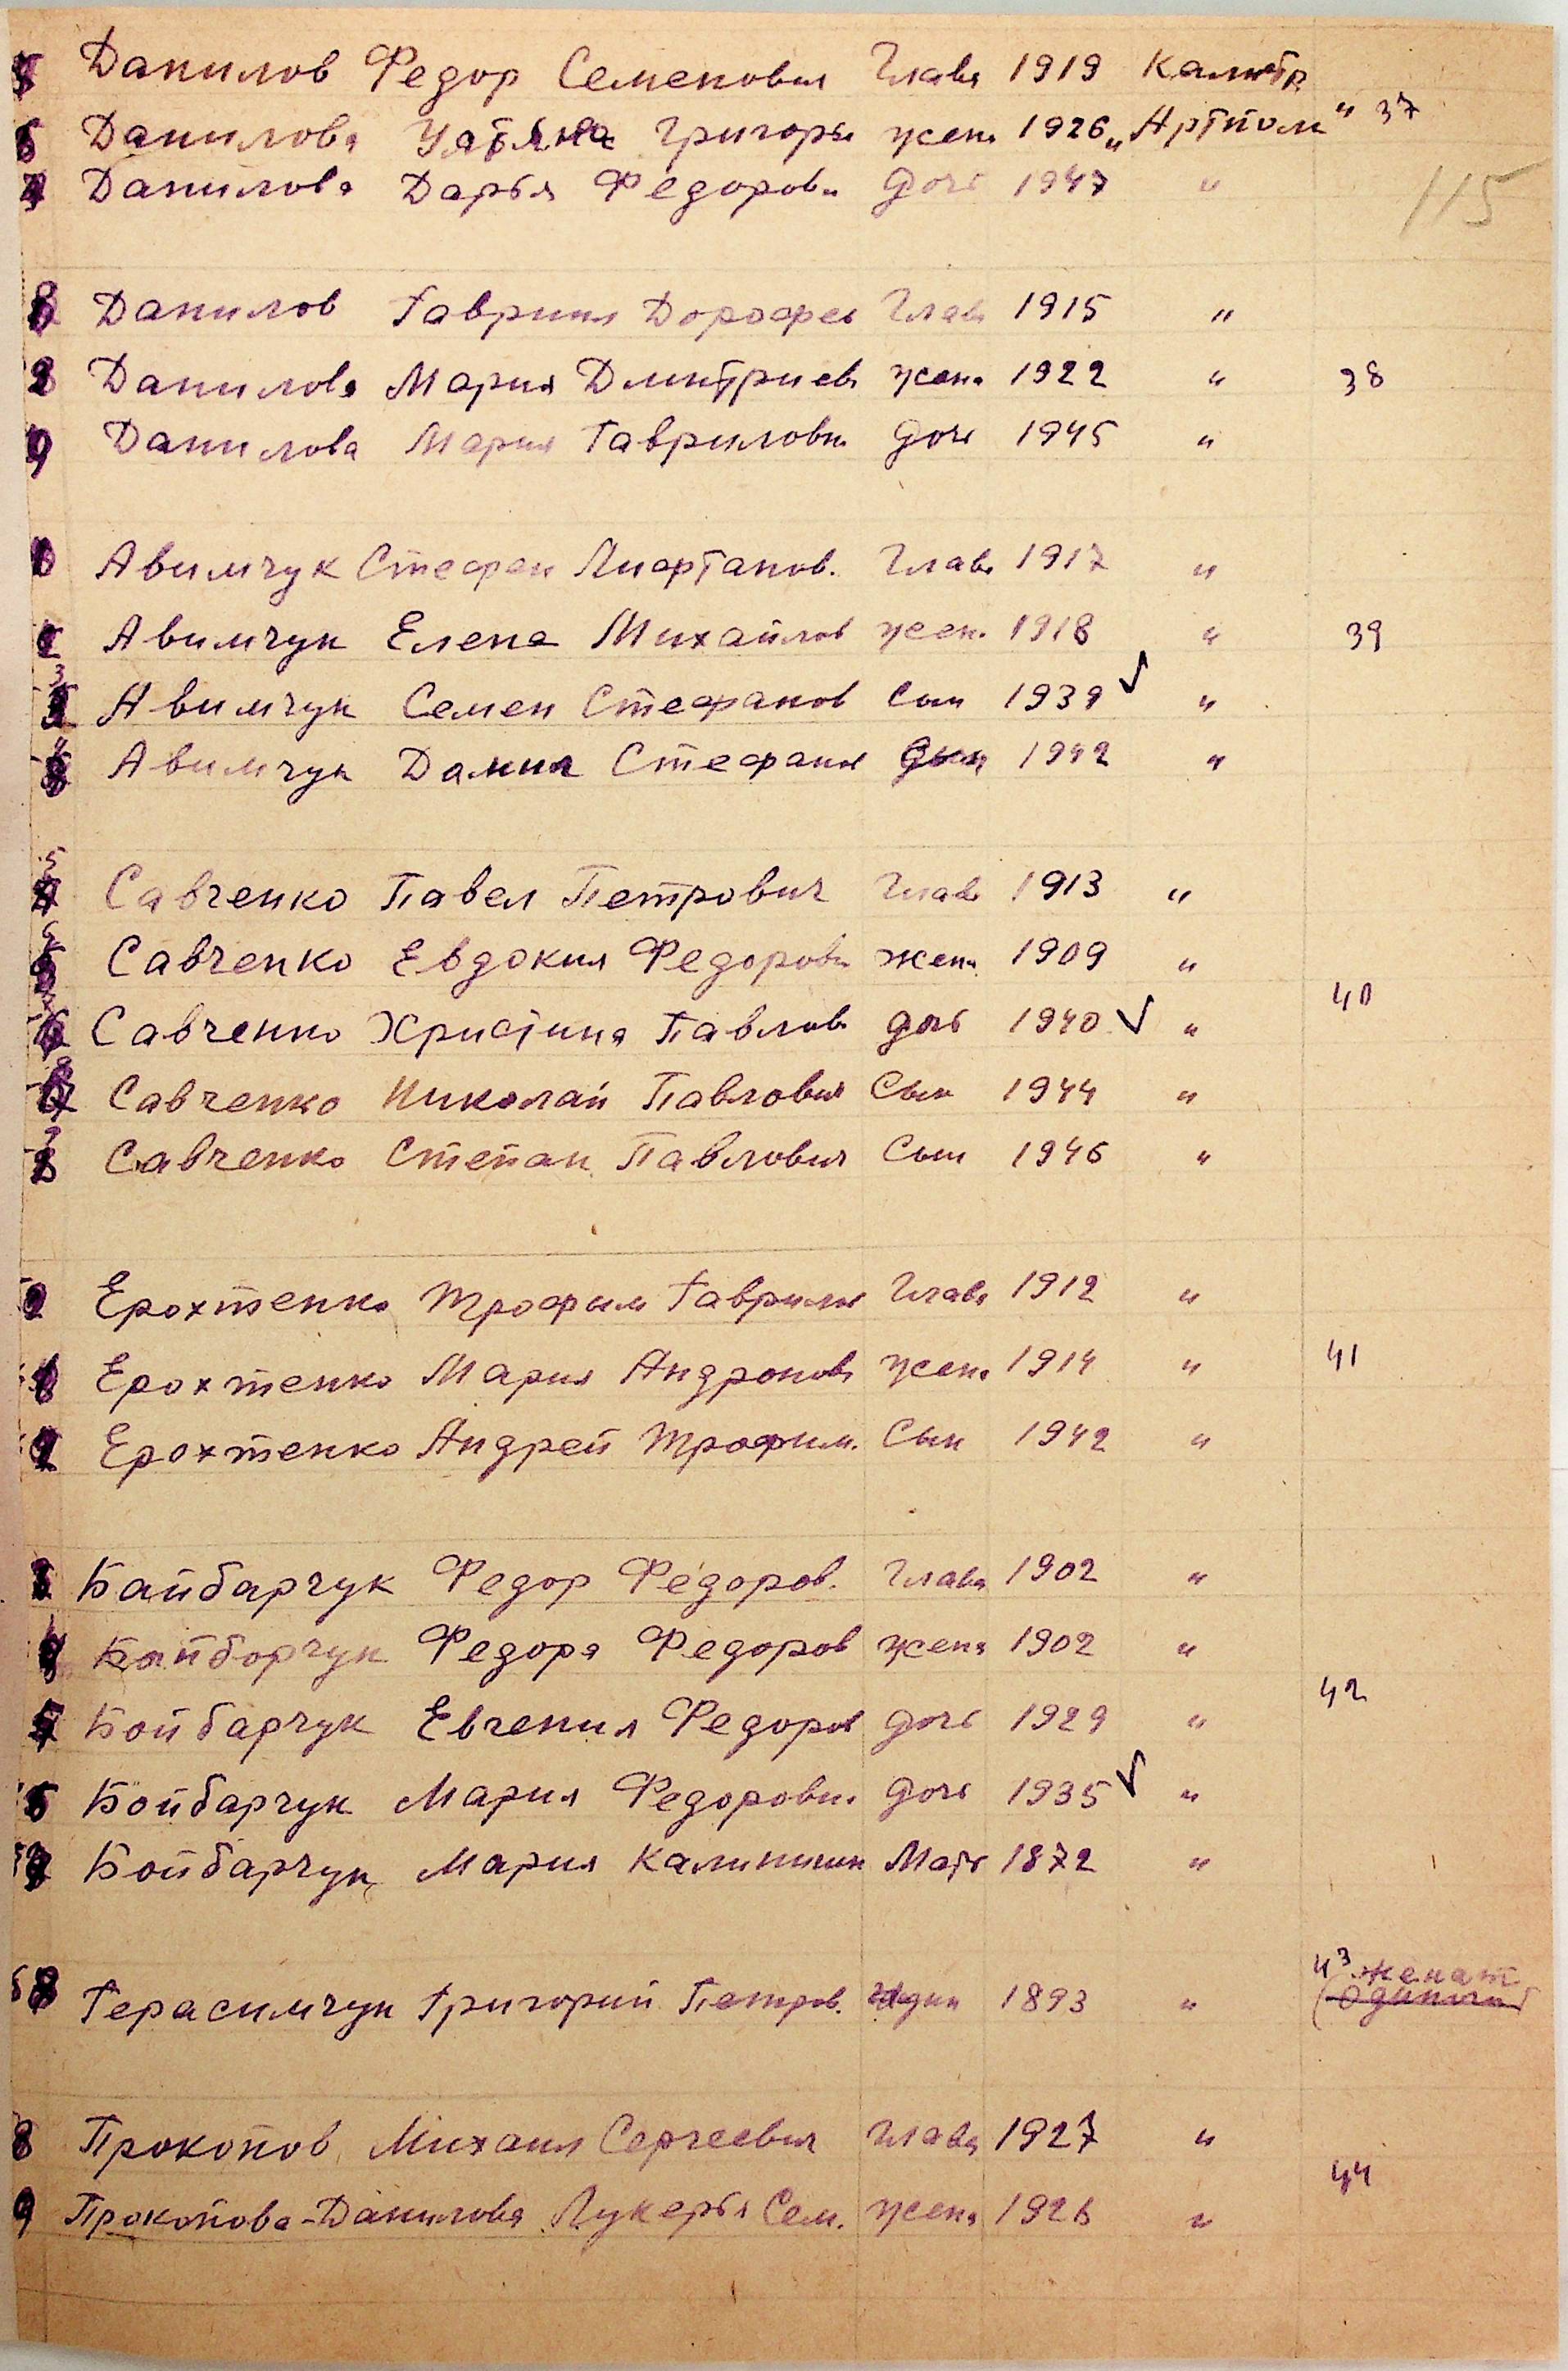 Данилов Федор Семенович Глава 1919
Данилова Григорь жена 1926 37
Данилова Дарья Федоровн дочь 1947 "
115
Данилов Гавриил Дорофеев Глава 1915 "
Данилова Мария Дмитриев жена 1922 " 38
Данилова Мария Гавриловн дочь 1945 "
Авимчук Стефан Глава 1917 "
Авимчук Елена Михайлов жена 1918 " 39
Авимчук Семен Стефанов Сын 1939 ✓ "
Авимчук Стефанов 1942 "
Савченко Павел Петрович Глава 1913 "
Савченко Евдокия Федоровн жена 1909 "
40
Савченко Христина Павлов дочь 1940 ✓ "
Савченко Николай Павлович Сын 1944 "
Савченко Степан Павлович Сын 1946 "
Ерохтенко Трофим Гаврилов Глава 1912 "
Ерохтенко Мария Андронов жена 1914 " 41
Ерохтенко Андрей Трофим. Сын 1942 "
Байбарчук Федор Федоров. Глава 1902 "
Байборчук Федора Федоров жена 1902 "
42
Бойбарчук Евгения Федоров дочь 1929 "
Бойбарчук Мария Федоровн дочь 1935 ✓ "
Бойбарчук Мария Мать 1872 "
43 женат
Герасимчук Григорий Петров. 1893 " Одинокий
Прокопов Михаил Сергеевич глава 1927 "
44
Прокопова-Данилова Лукерья Сем. жена 1926 "